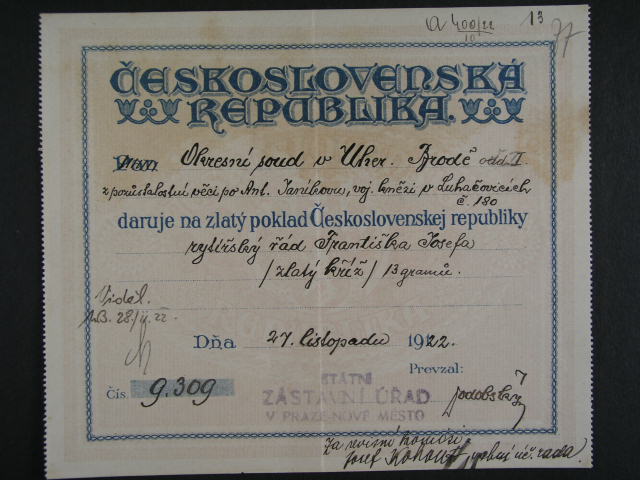 a 400/22
10
13
77
ČESKOSLOVENSKÁ
REPUBLIKA.
Okresní soud v Uher. Brodě odd. II
z pozůstalostní věci po Ant. Janíkovu, voj. knězi v Luhačovicích
č. 180
daruje na zlatý poklad Československej republiky
rytířský řád Františka Josefa
/zlatý kříž/ 13 gramů.
Viděl.
28/11. 22
Dňa 27. listopadu 1922.
Prevzal:
Čís. 9.309
STÁTNÍ
ZÁSTAVNÍ ÚŘAD
V PRAZE-NOVÉ MĚSTO
Za revisní komisi
Josef Kohout, vrchní úč. rada